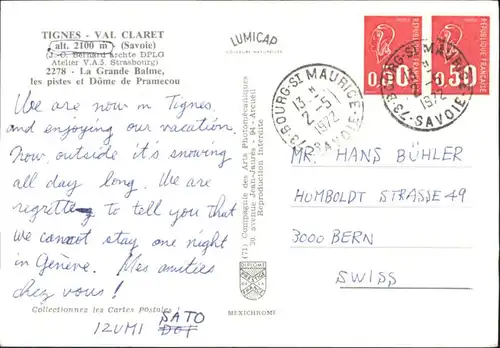 TIGNES - VAL CLARET
alt. 2100 m (Savoie)
(J.-C. Bernard Archte DPLG
Atelier V.A.3. Strasbourg)
2278 - La Grande Balme,
les pistes et Dôme de Pramecou
We are now in Tignes
and enjoying our vacation.
Now, outside it's snowing
all day long. We are
regretting to tell you that
we cannot stay one night
in Genève. Mes amitiés
chez vous !
Collectionnez les Cartes Postales !
IZUMI SATO
LUMICAP
(71) Compagnie des Arts Photomécaniques
30, avenue Jean-Jaurès - 94 - Arcueil
Reproduction interdite
MEXICHROME
RÉPUBLIQUE FRANÇAISE
0,50
0,50
73 BOURG-ST MAURICE
13 H
2-5
1972
SAVOIE
73 BOURG-ST MAURICE
13 H
2-5
1972
SAVOIE
MR. HANS BÜHLER
HUMBOLDT STRASSE 49
3000 BERN
SWISS